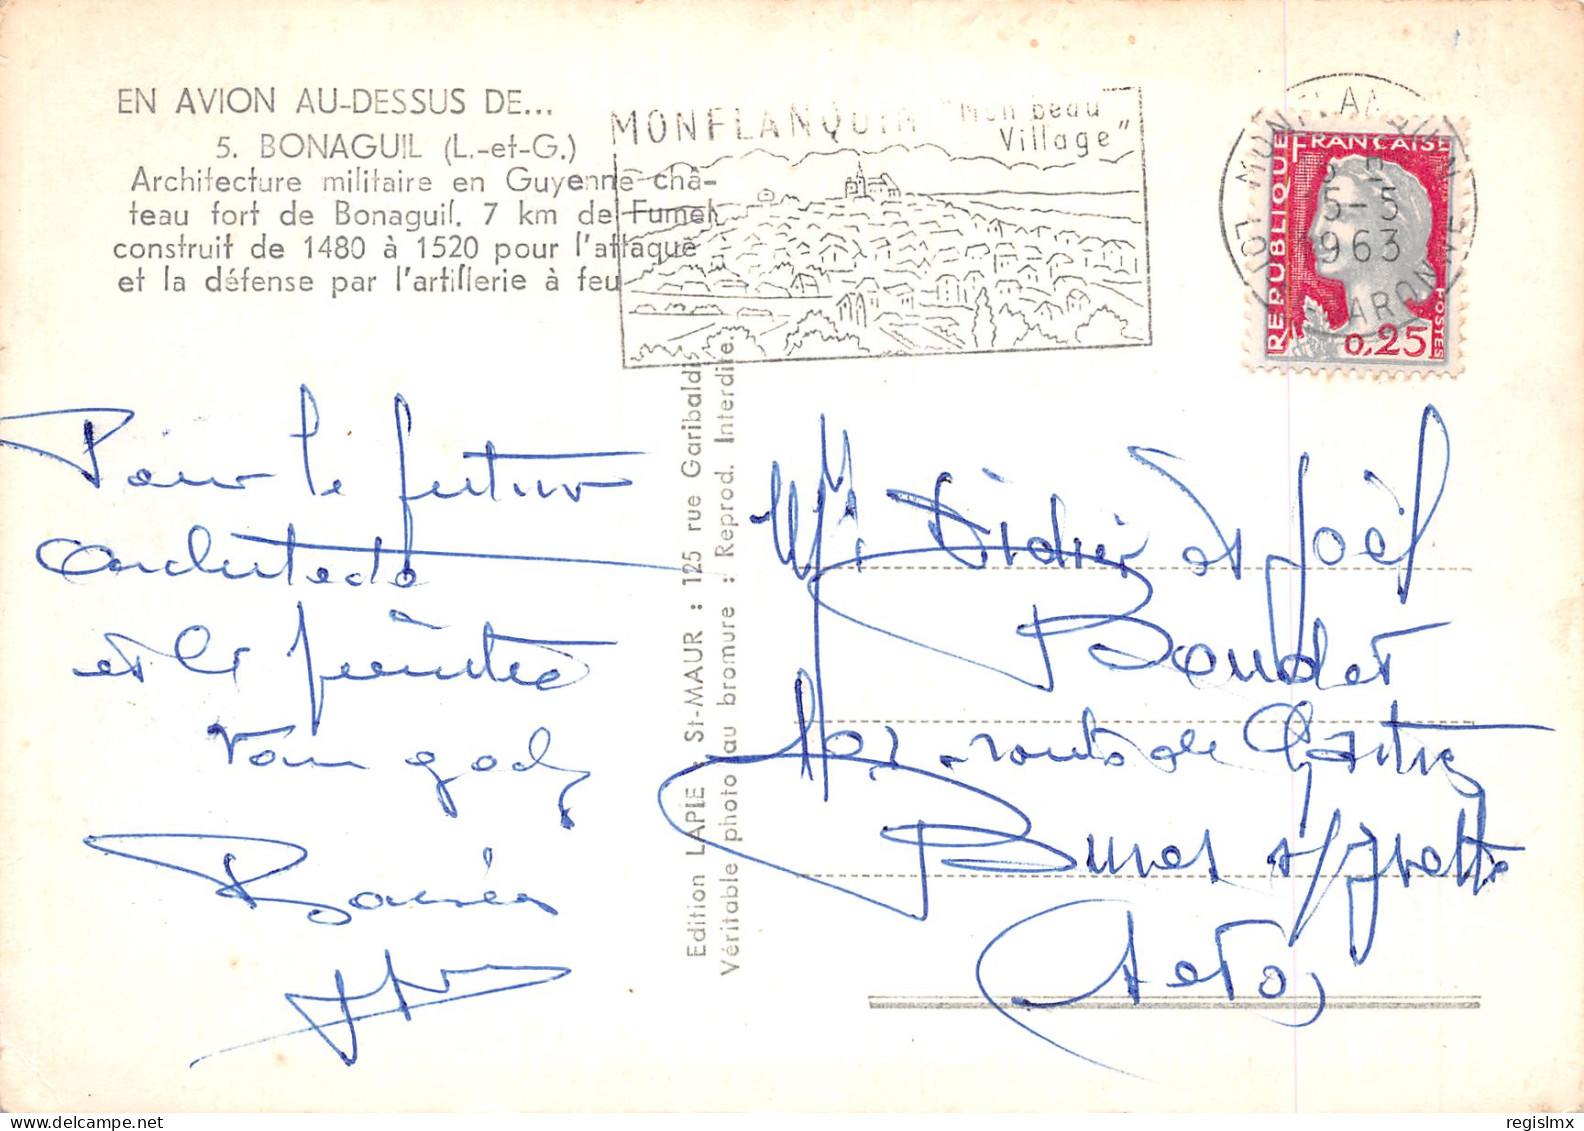 EN AVION AU-DESSUS DE...
5. BONAGUIL (L.-et-G.)
Architecture militaire en Guyenne châ-
teau fort de Bonaguil. 7 km de Fumel
construit de 1480 à 1520 pour l'attaque
et la défense par l'artillerie à feu
MONFLANQUIN "Mon beau
Village"
MONFLANQUIN
LOT GARONNE
15-5
1963
REPUBLIQUE FRANÇAISE
POSTES
0,25
Pour le futur
architecte
et le peintre
Edition LAPIE : St-MAUR : 125 rue Garibaldi
Véritable photo au bromure : Reprod. Interdite.
Didier et Joël
Boudet
route de
Bures s/Yvette
regislmx